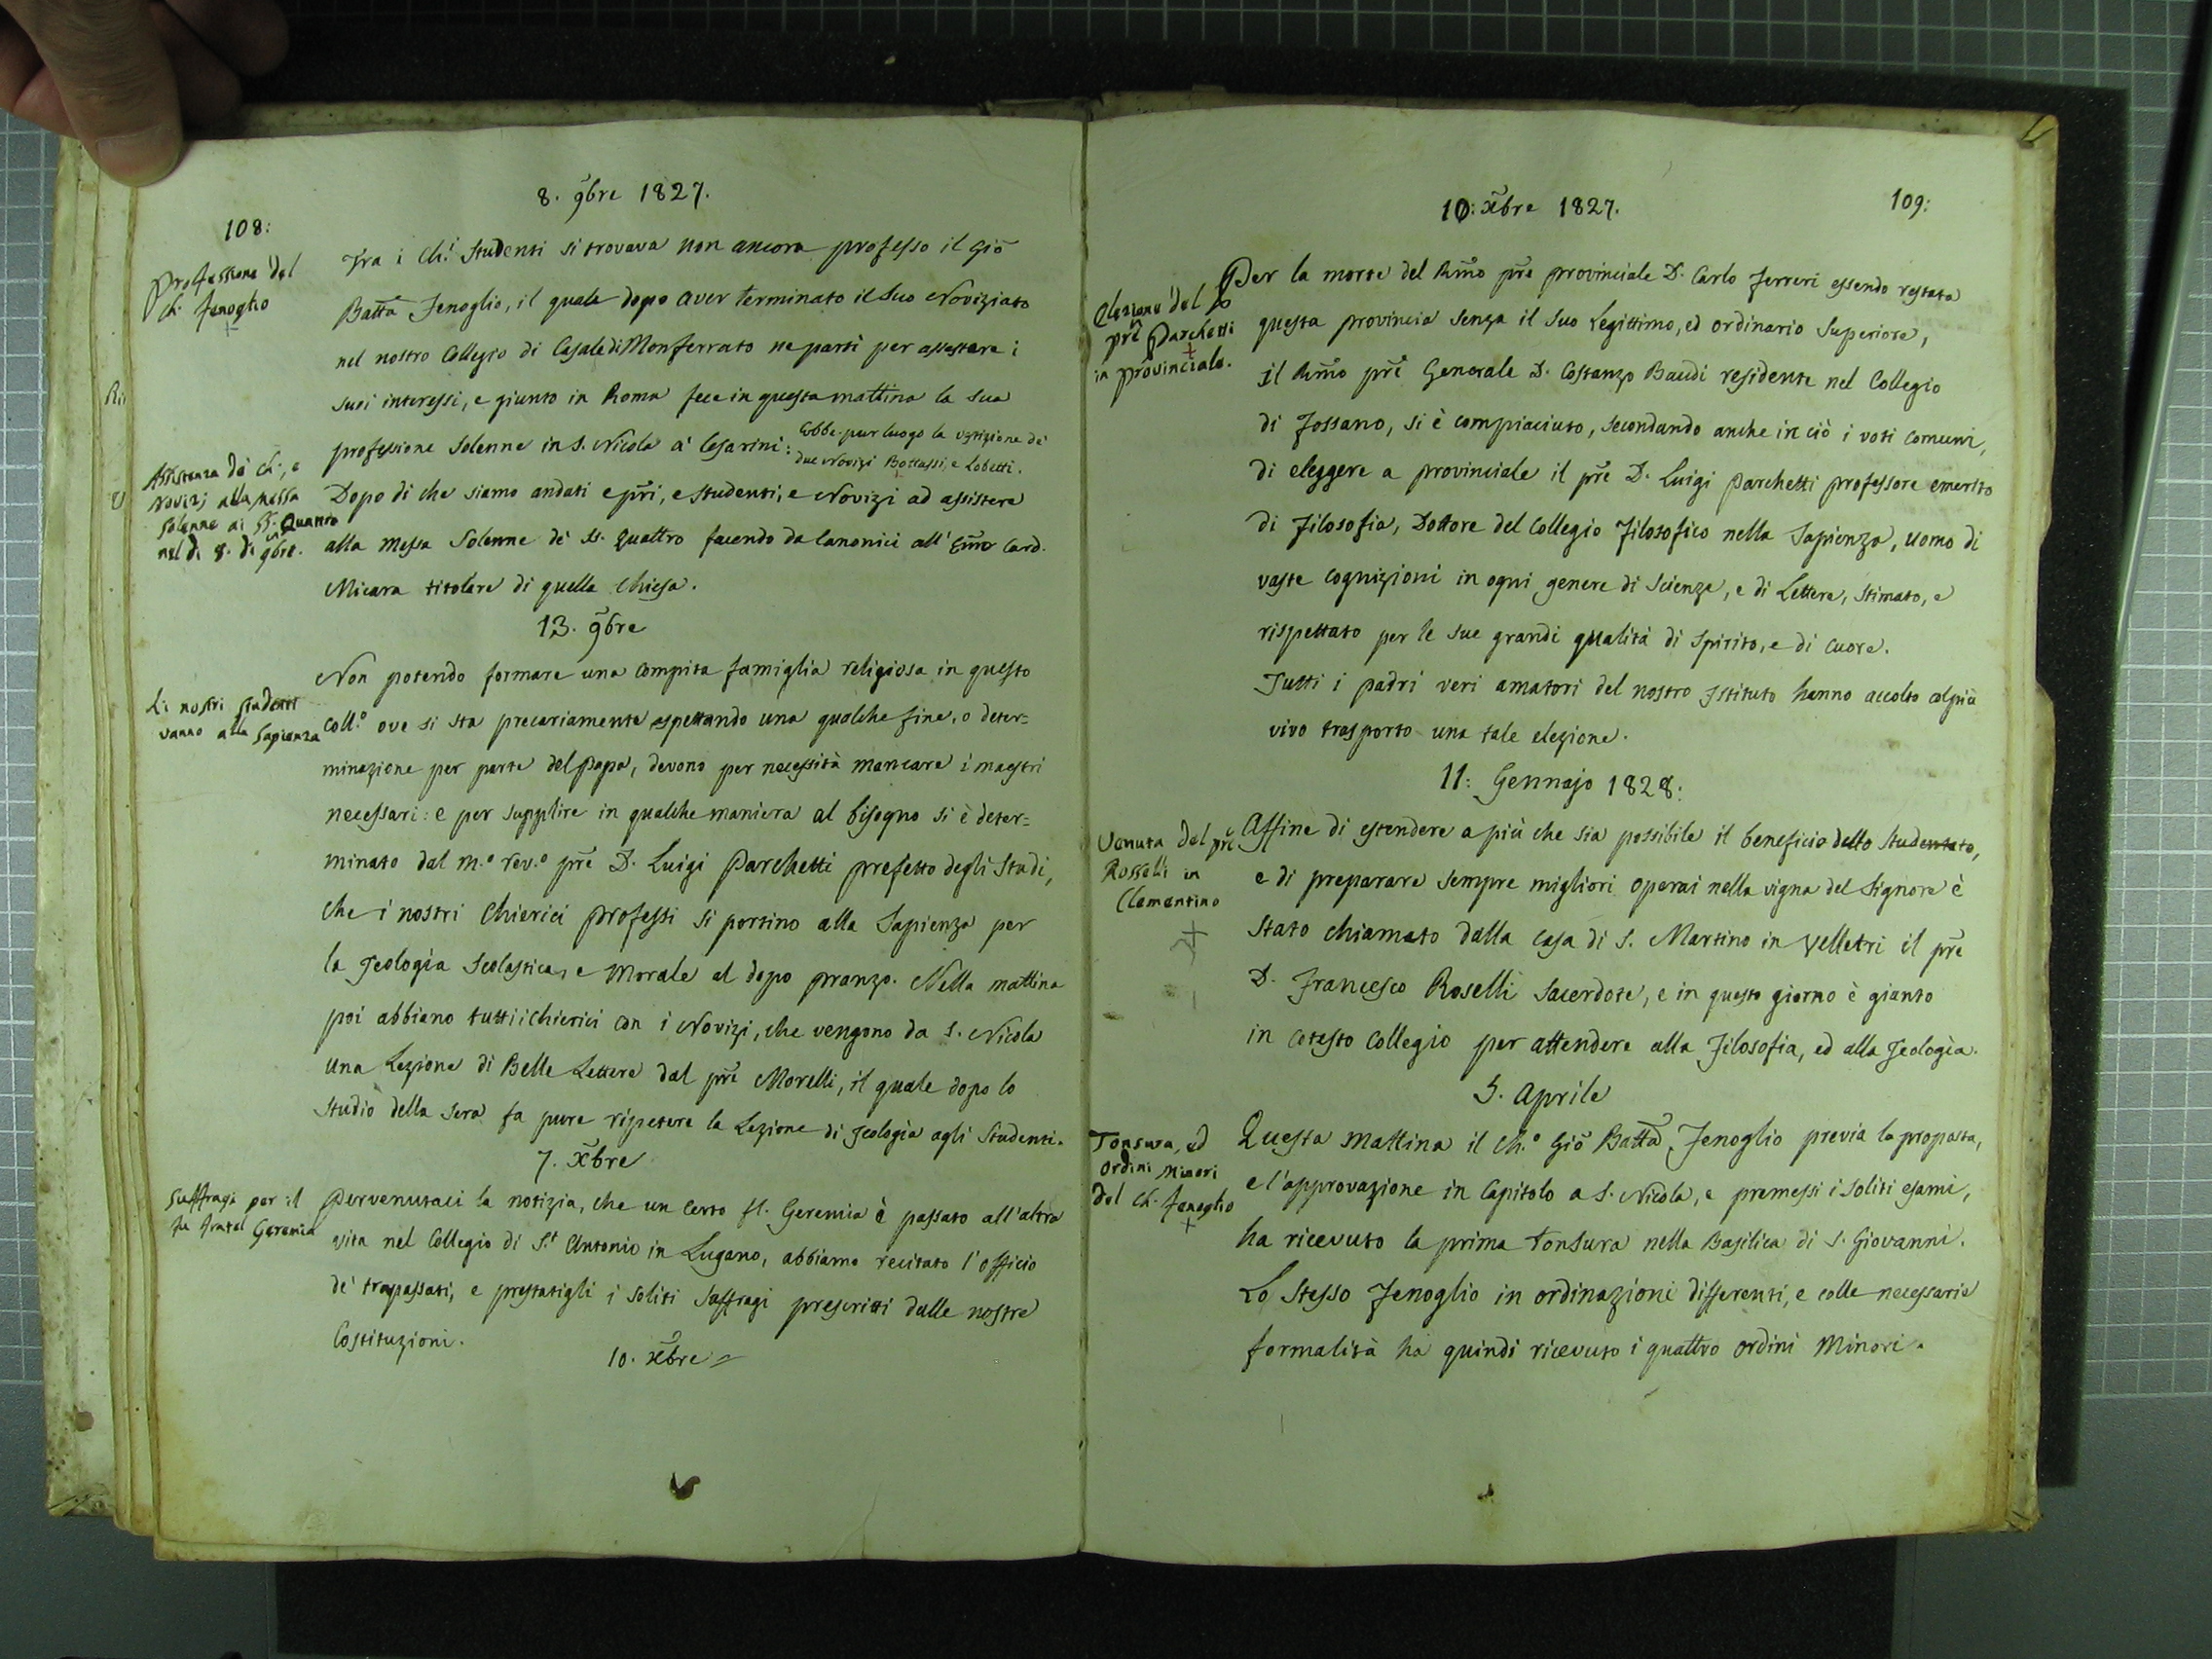 8. 9bre 1827.
108:
Professione del
Ch. Fenoglio
+
Fra i Ch.i Studenti si trovava non ancora professo il Giõ
Batta Fenoglio, il quale dopo aver terminato il Suo Noviziato
nel nostro Collegio di Casale di Monferrato ne partì per assestare i
suoi interessi, e giunto in Roma fece in questa mattina la sua
professione Solenne in S. Nicola a' Cesarini: Ebbe pur luogo la vestizione de'
due Novizi Bottassi, e Lobetti.
Assistenza de' Ch., e
Novizj alla messa
solenne ai SS. Quattro
nel dì 8. di 9bre.
Dopo di che siamo andati e pri, e studenti, e Novizi ad assistere
alla Messa Solenne de' SS. Quattro facendo da Canonici all' Emo Card.
Micara titolare di quella Chiesa.
13. 9bre
Li nostri studenti
vanno alla Sapienza
Non potendo formare una compita famiglia religiosa in questo
Coll.o ove si sta precariamente aspettando una qualche fine, o deter=
minazione per parte del Papa, devono per necessità mancare i maestri
necessari: e per supplire in qualche maniera al bisogno si è deter=
minato dal m.o rev.o prẽ D. Luigi Parchetti prefetto degli Studi,
che i nostri Chierici professi si portino alla Sapienza per
la Teologia Scolastica, e Morale al dopo pranzo. Nella mattina
poi abbiano tutti i Chierici con i Novizi, che vengono da S. Nicola
una Lezione di Belle Lettere dal prẽ Morelli, il quale dopo lo
Studio della sera fa pure ripetere la Lezione di Teologia agli Studenti.
7. Xbre
Suffragi per il
fu fratel Geremia
Pervenutaci la notizia, che un certo fl. Geremia è passato all'altra
vita nel Collegio di S.t Antonio in Lugano, abbiamo recitato l'officio
de' trapassati, e prestatigli i soliti Suffragi prescritti dalle nostre
Costituzioni.
10. Xbre
10: Xbre 1827.
109:
Elezione del
prẽ Parchetti
+
in provinciale.
Per la morte del Rmo prẽ provinciale D. Carlo Ferreri essendo restata
questa provincia senza il suo Legittimo, ed ordinario Superiore,
il Rmo prẽ Generale D. Costanzo Baudi residente nel Collegio
di Fossano, si è compiaciuto, secondando anche in ciò i voti comuni,
di eleggere a provinciale il prẽ D. Luigi Parchetti professore emerito
di Filosofia, Dottore del Collegio Filosofico nella Sapienza, uomo di
vaste cognizioni in ogni genere di Scienze, e di Lettere, stimato, e
rispettato per le sue grandi qualità di spirito, e di cuore.
Tutti i padri veri amatori del nostro Istituto hanno accolto col più
vivo trasporto una tale elezione.
11: Gennajo 1828:
Venuta del prẽ
Rosselli in
Clementino
+
Affine di estendere a più che sia possibile il beneficio dello Studentato,
e di preparare sempre migliori operai nella vigna del Signore è
stato chiamato dalla Casa di S. Martino in Velletri il prẽ
D. Francesco Roselli Sacerdote, e in questo giorno è giunto
in cotesto Collegio per attendere alla Filosofia, ed alla Teologia.
5. Aprile
Tonsura, ed
ordini Minori
del Ch. Fenoglio
+
Questa mattina il Ch.o Giõ Batta Fenoglio previa la proposta,
e l'approvazione in Capitolo a S. Nicola, e premessi i soliti esami,
ha ricevuto la prima Tonsura nella Basilica di S. Giovanni.
Lo stesso Fenoglio in ordinazioni differenti, e colle necessarie
formalità ha quindi ricevuto i quattro ordini Minori.